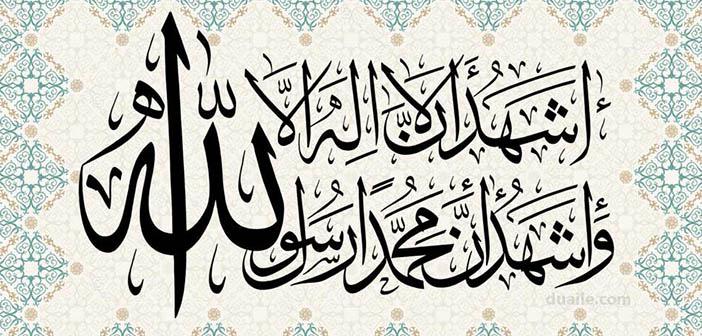 أشهد أن لا إله إلا
وأشهد أن محمدًا رسول
الله
duaile.com